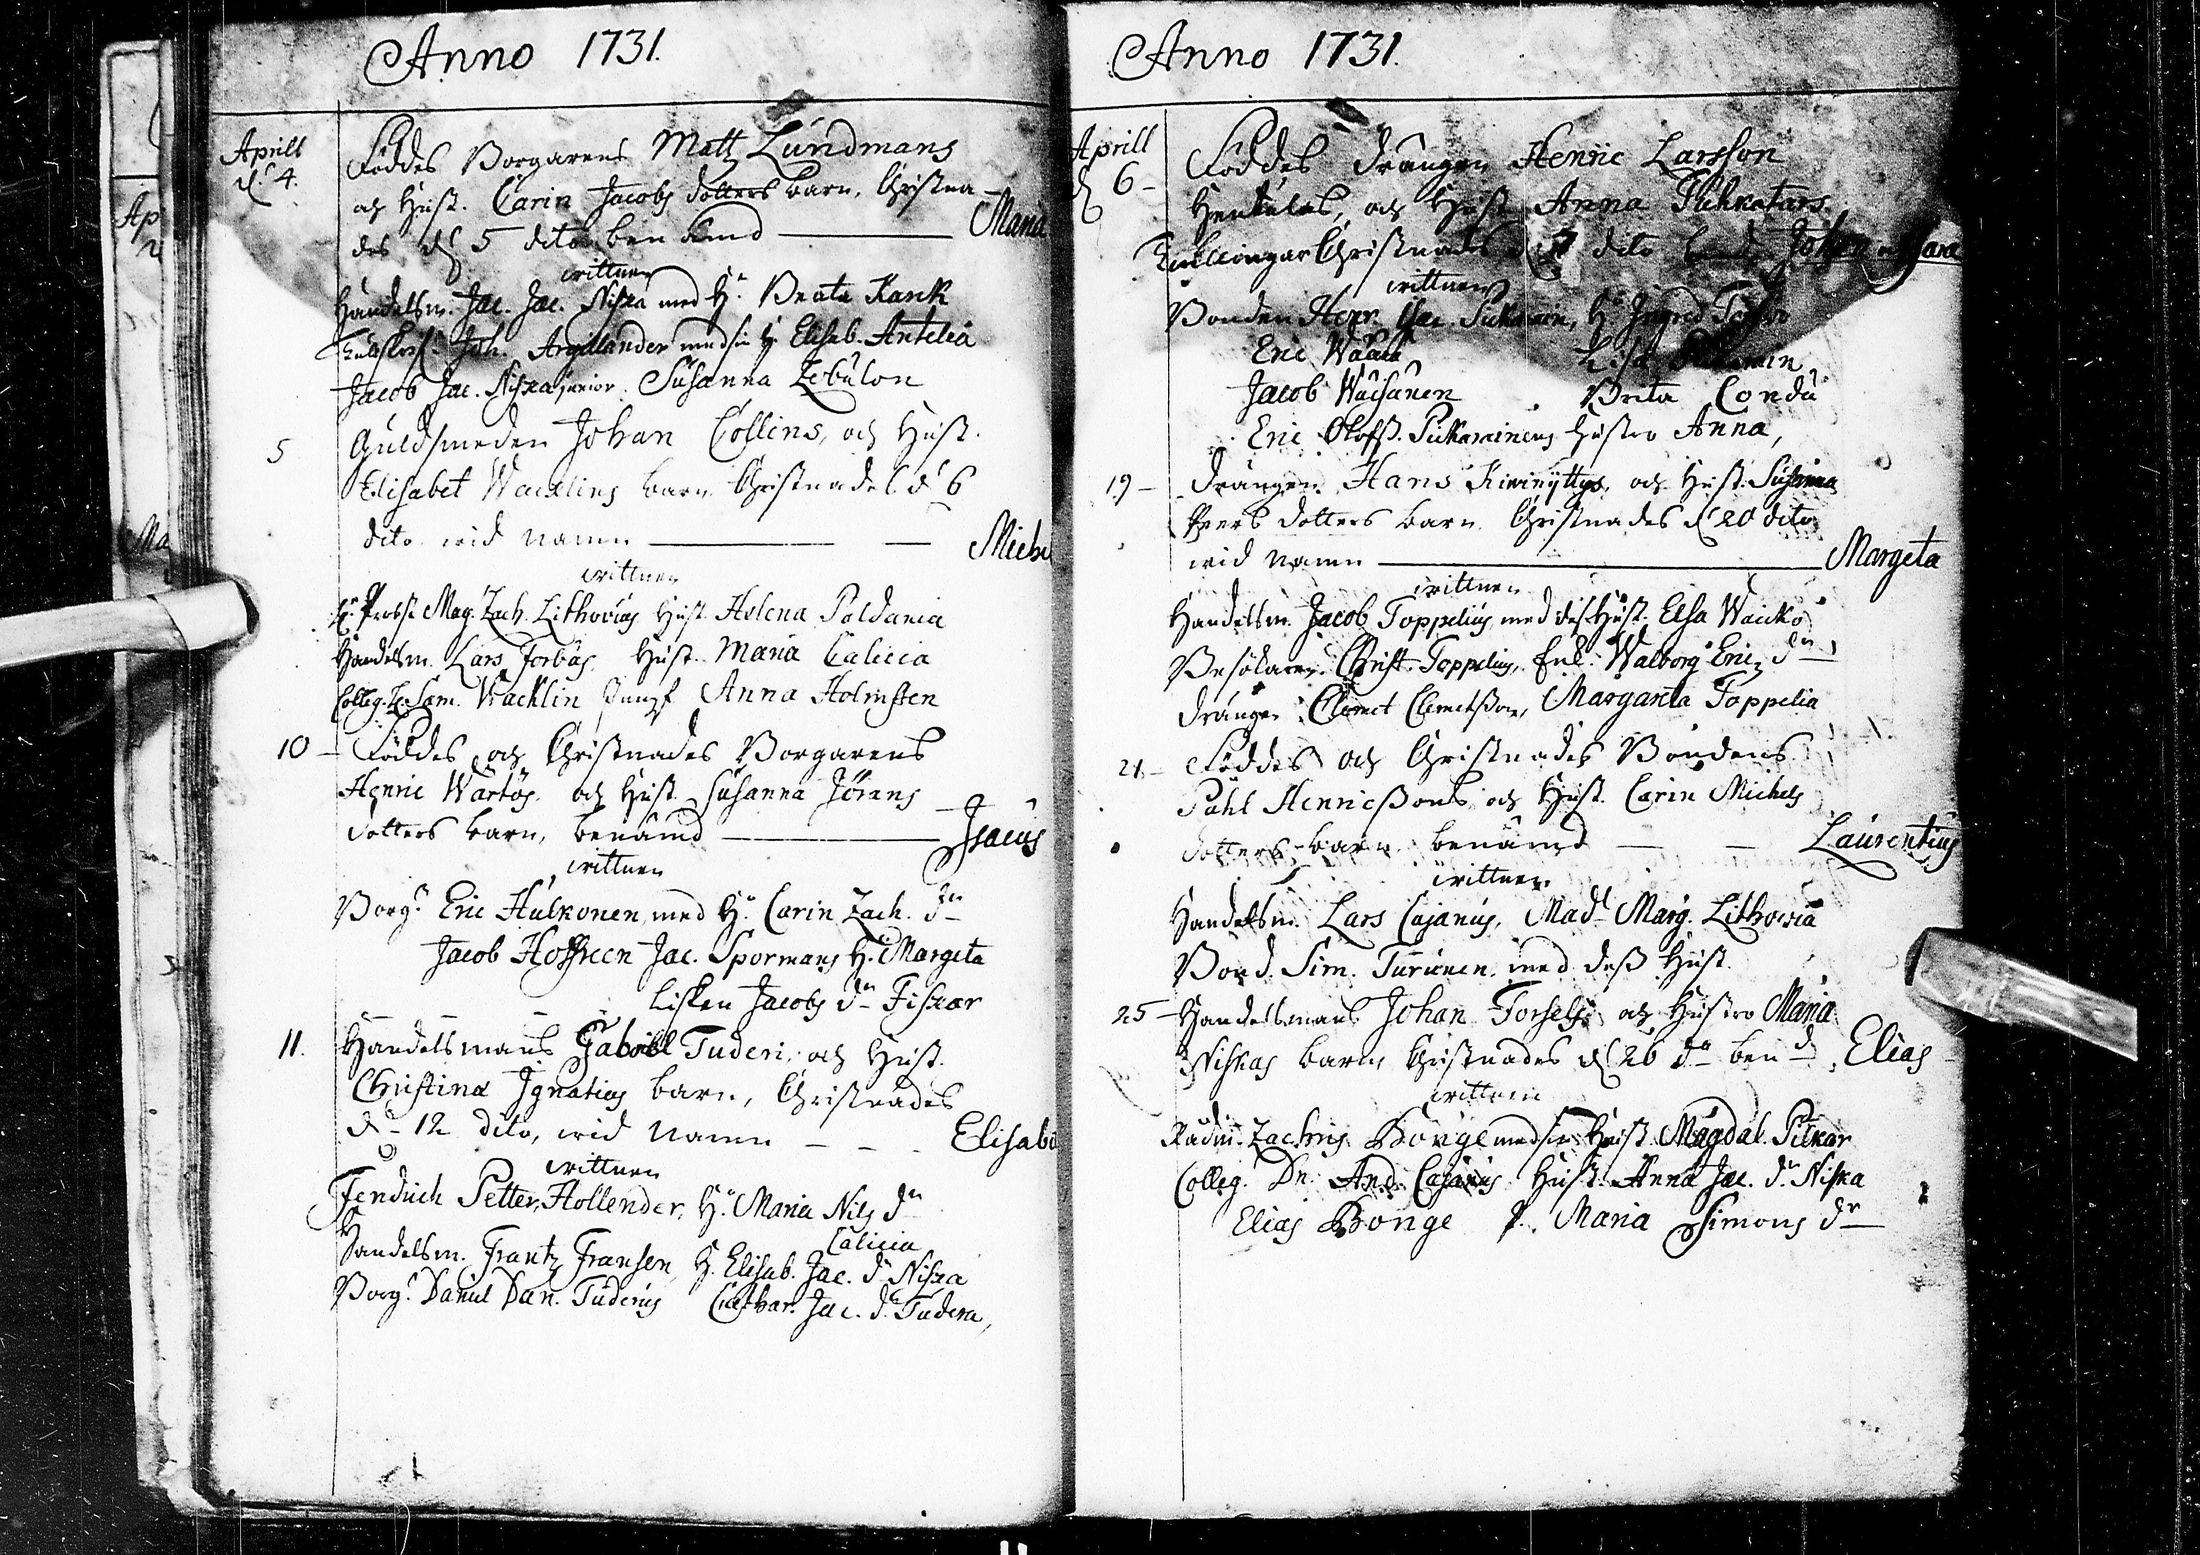 Anno 1731.
Aprill
d. 4.
Föddes Borgarens Matz Lundmans
och Hust. Carin Jacobs dotters barn, Christna-
des d. 5 dito benämd — Maria
wittnen
Handelsm. Jac. Jac. Niska med H. Beata Kank
Joh. Argillander med sin H. Elisab. Antelia
Jacob Jac. Niska junior. Susanna Zebulon
5 Guldsmeden Johan Collins, och Hust.
Elisabet Wacklins barn Christnades d. 6
dito wid namn — — Miche
wittnen
H. Probst. Mag. Zach. Lithovius Hust. Helena Poldania
Handelsm. Lars Forbus. Hust. Maria Calicia
Colleg. Sam. Wacklin Jungf. Anna Holmsten
10 - Föddes och Christnades Borgarens
Henric Wartos och Hust. Susanna Jörans
dotters barn, benämd — Isacus
wittnen
Borg. Eric Hulkonen med H. Carin Zach. dn
Jacob Hoffreen Jac. Spormans H. Margeta
Lisken Jacobs dn Fiskar
11. Handelsmans Gabriel Tuderi, och Hust.
Christina Ignatius barn, Christnades
d. 12 dito, wid namn — - Elisabe
wittnen
Fendrich Petter Hollender, H. Maria Nils dn
Calicia
Handelsm. Frantz Fransen, H. Elisab. Jac. d. Niska
Borg. Daniel Dan. Tuderus Cathar. Jac. d. Tudera,
Anno 1731.
Aprill
d 6 -
Föddes drängen Henric Larsson
och Hust. Anna
Twillingar Christnades d 7 dito Johan och Sara
wittnen
Bonden Henr. Isac. H. Ingred
Eric
Jacob Waisanen Brita Condu
Eric Olofss. Pickarainens hustro Anna,
19 - Drängen Hans Kiwinyttys, och Hust. Susanna
Peers dotters barn Christnades d. 20 dito
wid namn — Margeta
wittnen
Handelsm. Jacob Toppelius med dess Hust. Elsa Waicko
Besökaren Christ. Toppelius, Enk. Walborg Erics dn
Drängen Clemet Clemetsson, Margareta Toppelia
21 - Föddes och Christnades Bondens
Påhl Henricssons och Hust. Carin Michels
dotters barn benämd — — Laurentius
wittnen
Handelsm. Lars Cajanus, Mad. Marg. Lithovia
Bond. Sim. Turunen med dess Hust.
25 - Handelsmans Johan Forsels och Hustro Maria
Niskas barn Christnades d 26 do ben d Elias
wittnen
Rådm. Zachris Bonge med sin Hust. Magdal. Pikar
Colleg. Dn. And. Cajanus Hust. Anna Jac. d. Niska
Elias Bonge P. Maria Simons dr